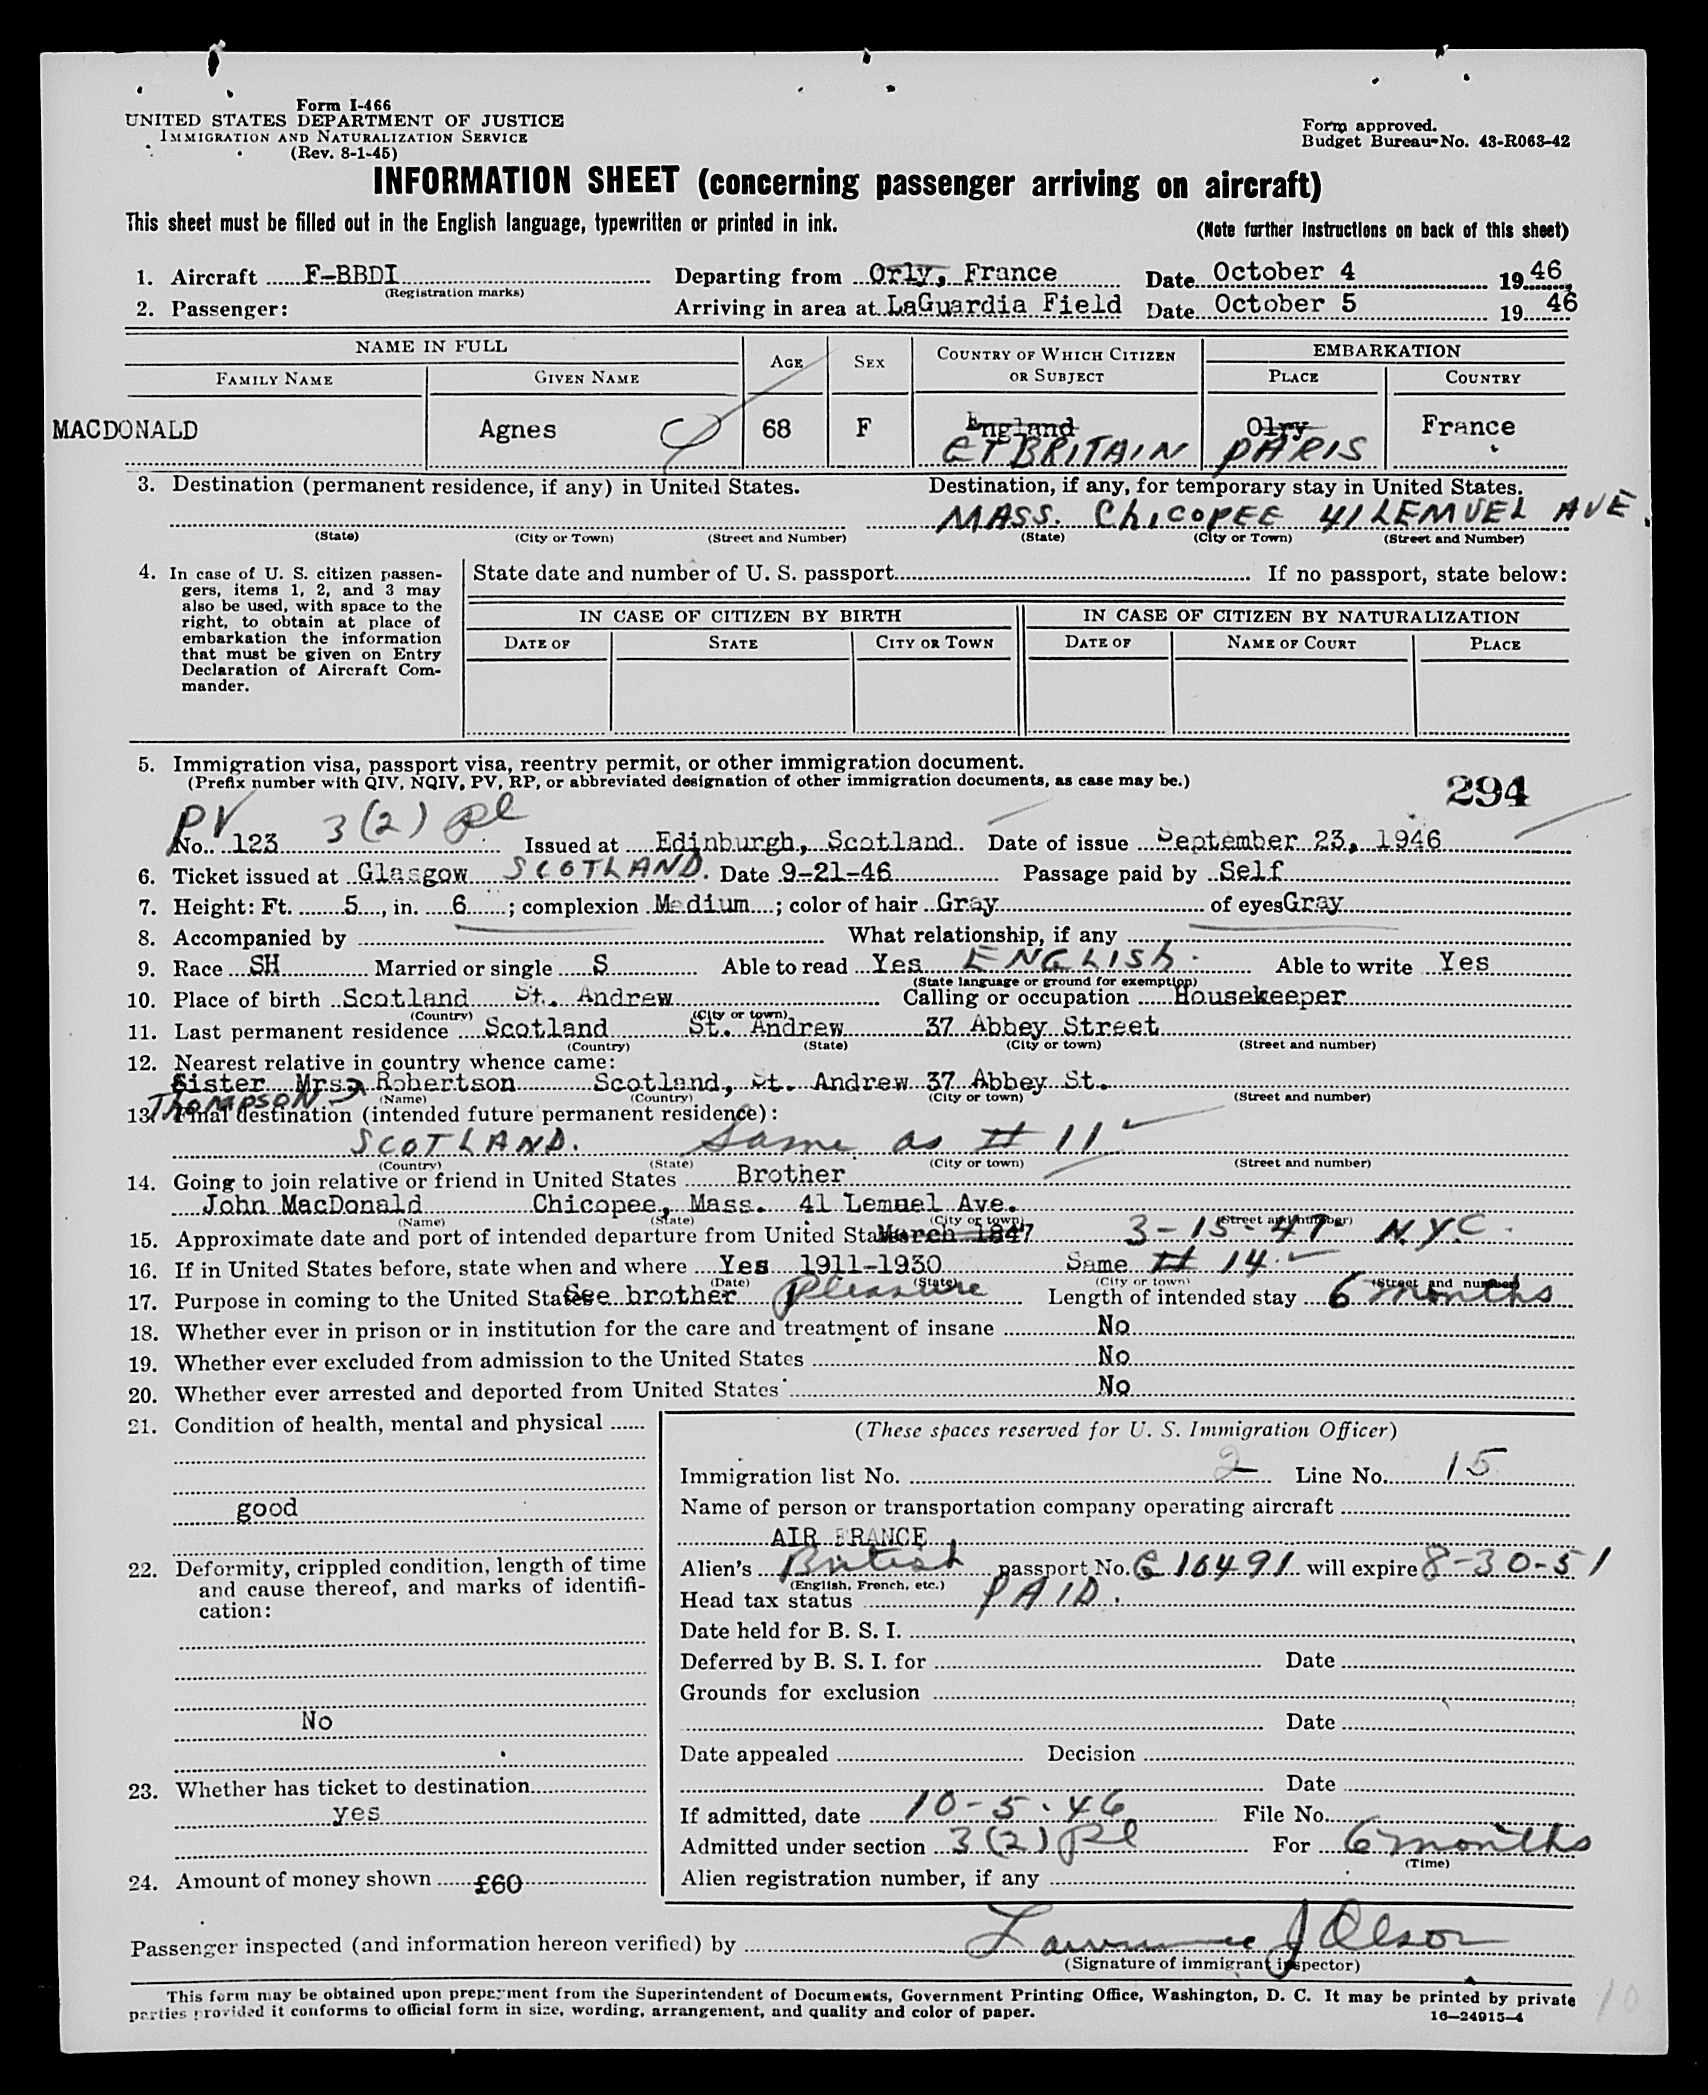 Form I-466
UNITED STATES DEPARTMENT OF JUSTICE
IMMIGRATION AND NATURALIZATION SERVICE
(Rev. 8-1-45)
Form approved.
Budget Bureau No. 43-R063-42
INFORMATION SHEET (concerning passenger arriving on aircraft)
This sheet must be filled out in the English language, typewritten or printed in ink.
(Note further instructions on back of this sheet)
1. Aircraft F-BBDI Departing from Orly, France Date October 4 1946
(Registration marks)
2. Passenger: Arriving in area at LaGuardia Field Date October 5 1946
NAME IN FULL AGE SEX COUNTRY OF WHICH CITIZEN OR SUBJECT EMBARKATION
FAMILY NAME GIVEN NAME PLACE COUNTRY
MACDONALD Agnes 68 F England Olry France
GT BRITAIN PARIS
3. Destination (permanent residence, if any) in United States. Destination, if any, for temporary stay in United States.
MASS. ChICOPEE 41 LEMUEL AVE.
(State) (City or Town) (Street and Number) (State) (City or Town) (Street and Number)
4. In case of U. S. citizen passen-
gers, items 1, 2, and 3 may
also be used, with space to the
right, to obtain at place of
embarkation the information
that must be given on Entry
Declaration of Aircraft Com-
mander.
State date and number of U. S. passport If no passport, state below:
IN CASE OF CITIZEN BY BIRTH IN CASE OF CITIZEN BY NATURALIZATION
DATE OF STATE CITY OR TOWN DATE OF NAME OF COURT PLACE
5. Immigration visa, passport visa, reentry permit, or other immigration document.
(Prefix number with QIV, NQIV, PV, RP, or abbreviated designation of other immigration documents, as case may be.)
294
PV 3(2) Pl
No. 123 Issued at Edinburgh, Scotland Date of issue September 23, 1946
6. Ticket issued at Glasgow SCOTLAND. Date 9-21-46 Passage paid by Self
7. Height: Ft. 5, in. 6; complexion Medium; color of hair Gray of eyes Gray
8. Accompanied by What relationship, if any
9. Race SH Married or single S Able to read Yes ENGLISh. Able to write Yes
(State language or ground for exemption)
10. Place of birth Scotland St. Andrew Calling or occupation Housekeeper
(Country) (City or town)
11. Last permanent residence Scotland St. Andrew 37 Abbey Street
(Country) (State) (City or town) (Street and number)
12. Nearest relative in country whence came:
Sister Mrs. Robertson Scotland, St. Andrew 37 Abbey St.
ThOMPSON
(Name) (Country) (City or town) (Street and number)
13. Final destination (intended future permanent residence):
SCOTLAND. Same as # 11
(Country) (State) (City or town) (Street and number)
14. Going to join relative or friend in United States Brother
John MacDonald Chicopee, Mass. 41 Lemuel Ave.
(Name) (State) (City or town) (Street and number)
15. Approximate date and port of intended departure from United States March 1847 3-15-47 N.Y.C.
16. If in United States before, state when and where Yes 1911-1930 Same # 14.
(Date) (State) (City or town) (Street and number)
17. Purpose in coming to the United States See brother Pleasure Length of intended stay 6 months
18. Whether ever in prison or in institution for the care and treatment of insane No
19. Whether ever excluded from admission to the United States No
20. Whether ever arrested and deported from United States No
21. Condition of health, mental and physical
good
22. Deformity, crippled condition, length of time
and cause thereof, and marks of identifi-
cation:
No
23. Whether has ticket to destination
yes
24. Amount of money shown £60
(These spaces reserved for U. S. Immigration Officer)
Immigration list No. 2 Line No. 15
Name of person or transportation company operating aircraft
AIR FRANCE
Alien's British passport No. C 10491 will expire 8-30-51
(English, French, etc.)
Head tax status PAID.
Date held for B. S. I.
Deferred by B. S. I. for Date
Grounds for exclusion
Date
Date appealed Decision
Date
If admitted, date 10-5-46 File No.
Admitted under section 3(2) Pl For 6 months
(Time)
Alien registration number, if any
Passenger inspected (and information hereon verified) by Lawrence J Olson
(Signature of immigrant inspector)
This form may be obtained upon prepayment from the Superintendent of Documents, Government Printing Office, Washington, D. C. It may be printed by private
parties provided it conforms to official form in size, wording, arrangement, and quality and color of paper.
16-24915-4
10